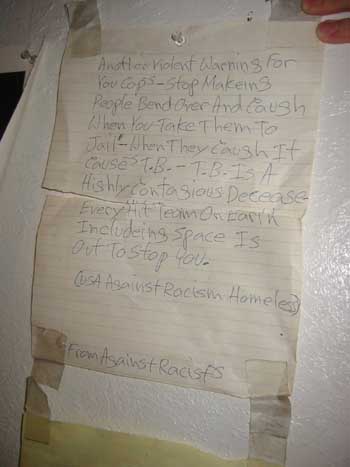 Another Violent Warning For
You Cops - Stop Makeing
People Bend Over And Cough
When You Take Them To
Jail - When They Caugh It
Causes T.B. - T.B. Is A
Highly Contagious Decease
Every Hit Team On Earth
Includeing Space Is
Out To Stop You.
(USA Against Racism Homeless)
From Against Racists